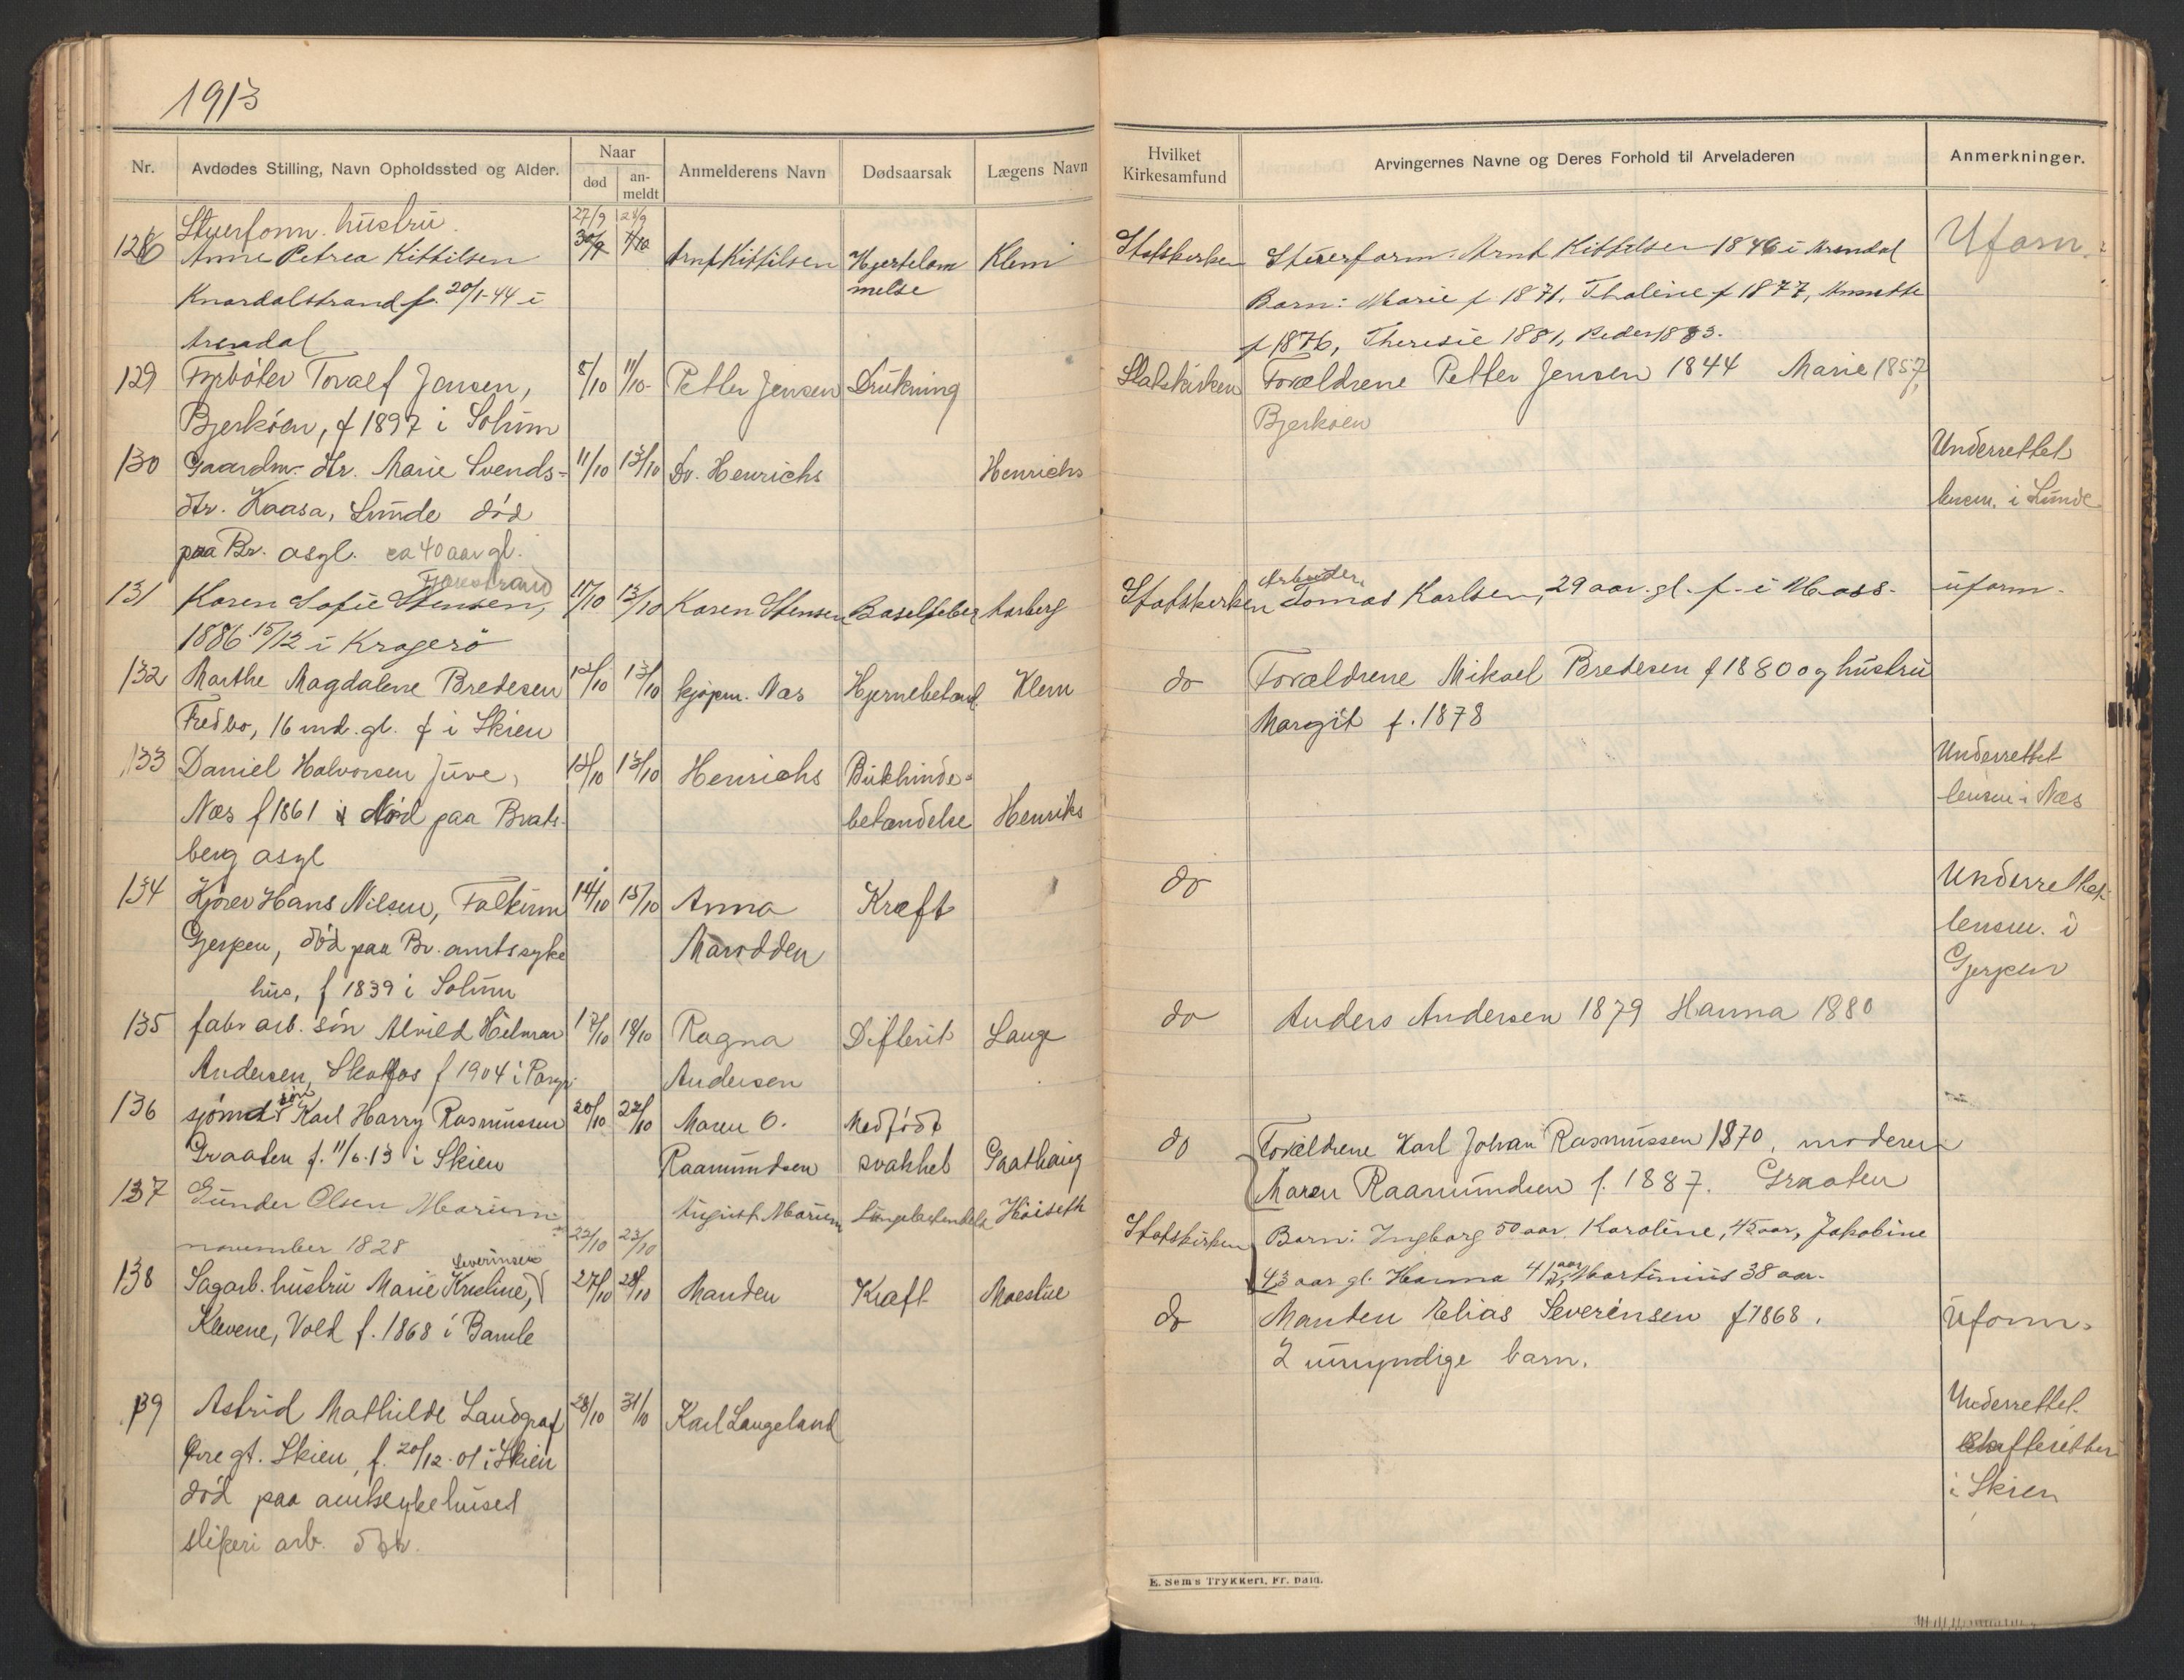 1913
Nr. Avdødes Stilling, Navn Opholdssted og Alder. Naar død an-meldt Anmelderens Navn Dødsaarsak Lægens Navn
Hvilket Kirkesamfund Arvingernes Navne og Deres Forhold til Arveladeren Anmerkninger.
hustru 27/9
128 Anne Petrea Kittilsen 30/9 1/10 Arnt Kittilsen Hjertelam Klem
Knardalstrand f. 20/1-44 i melse
Arendal
Statskirken Arnt Kittilsen 1846 i Arendal Uform.
Barn: Marie f 1871, Thaline f 1877, Annette
f 1876, Theresie 1881, Peder 1883.
129 Fyrböter Toralf Jensen, 8/10 11/10 Petter Jensen Drukning
Bjerköen, f 1897 i Solum
Statskirken Forældrene Petter Jensen 1844 Marie 1857,
Bjerköen
130 Gaardm. dtr. Marie Svends- 11/10 13/10 Dr. Henrichs Henrichs
dtr. Kaasa, Lunde död
paa Br. asyl. ca 40 aar gl.
Underrettet
lensm. i Lunde
131 Karen Sofie Stensen, 11/10 13/10 Karen Stensen Barselfeber Aarberg
1886 15/12 i Kragerö
Statskirken Arbeider Tomas Karlsen, 29 aar. gl. f. i Moss. uform.
132 Marthe Magdalene Bredesen 12/10 13/10 kjøpm. Næs Hjernebetænd. Klem
Fredbo, 16 md. gl. f i Skien
do Forældrene Mikael Bredesen f 1880 og hustru
Margit f. 1878
133 Daniel Halvorsen Juve, 12/10 13/10 Henrichs Bukhinde-
Næs f 1861 död paa Brats- betændelse Henriks
berg asyl
Underrettet
lensm i Næs
134 Kjörer Hans Nilsen, Falkum 14/10 15/10 Anna Kræft
Gjerpen, död paa Br. amtssyke Marodden
hus, f 1839 i Solum
do Underrettet
lensm. i
Gjerpen
135 fabr arb. sön Alvild Hilmar 17/10 18/10 Ragna Difterit Lange
Andersen, Skotfos f 1904 i Porsgr. Andersen
do Anders Andersen 1879 Hanna 1880
136 sjömds sön Karl Harry Rasmussen 20/10 22/10 Maren O. Medfödt
Graaten f. 11/6.13 i Skien Raamundsen svakhet Gaathaug
do Forældrene Karl Johan Rasmussen 1870, moderen
Maren Raamundsen f. 1887. Graaten
137 Gunder Olsen August Lungebetændelse Höiseth
november 1828 22/10 23/10
Statskirken Barn: Ingborg 50 aar. Karoline, 45 aar, Jakobine
43 aar gl. Hanna 41 aar, Martinius 38 aar.
Severinsen
138 Sagarb. hustru Marie Kristine, 27/10 28/10 Manden Kræft Moestue
Klevene, Vold f. 1868 i Bamle
do Manden Elias Severinsen f 1868. Uform.
2 umyndige barn.
139 Astrid Mathilde Landgraf 28/10 31/10 Karl Langeland
Övregt. Skien, f. 20/12.01 i Skien
död paa amtssykehuset
sliperi arb. dtr.
Underrettet
skifteretten
i Skien
E. Sem's Trykkeri, Fr.hald.